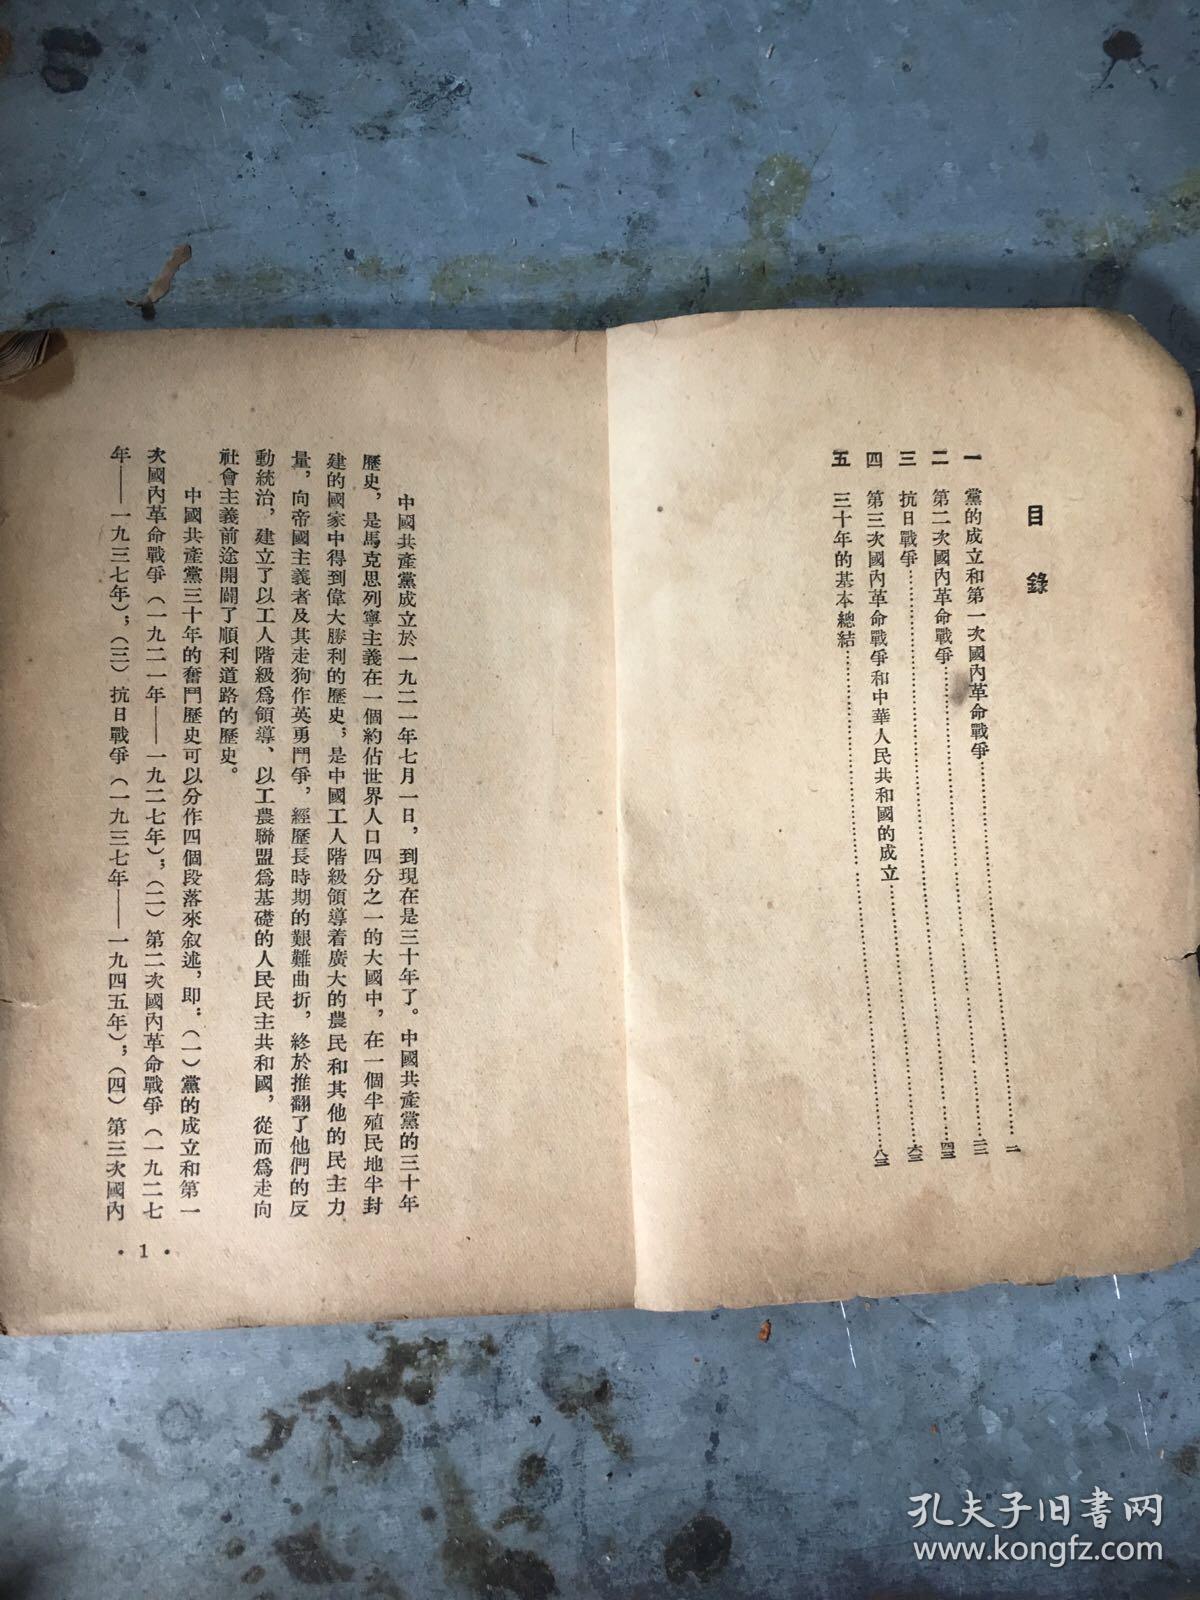 目錄
一 黨的成立和第一次國內革命戰爭……二
二 第二次國內革命戰爭……
三 抗日戰爭……
四 第三次國內革命戰爭和中華人民共和國的成立……
五 三十年的基本總結……
中國共產黨成立於一九二一年七月一日，到現在是三十年了。中國共產黨的三十年
歷史，是馬克思列寧主義在一個約佔世界人口四分之一的大國中，在一個半殖民地半封
建的國家中得到偉大勝利的歷史；是中國工人階級領導着廣大的農民和其他的民主力
量，向帝國主義者及其走狗作英勇鬥爭，經歷長時期的艱難曲折，終於推翻了他們的反
動統治，建立了以工人階級爲領導、以工農聯盟爲基礎的人民民主共和國，從而爲走向
社會主義前途開闢了順利道路的歷史。
中國共產黨三十年的奮鬥歷史可以分作四個段落來叙述，即：（一）黨的成立和第一
次國內革命戰爭（一九二一年——一九二七年）；（二）第二次國內革命戰爭（一九二七
年——一九三七年）；（三）抗日戰爭（一九三七年——一九四五年）；（四）第三次國內
• 1 •
孔夫子旧书网
www.kongfz.com